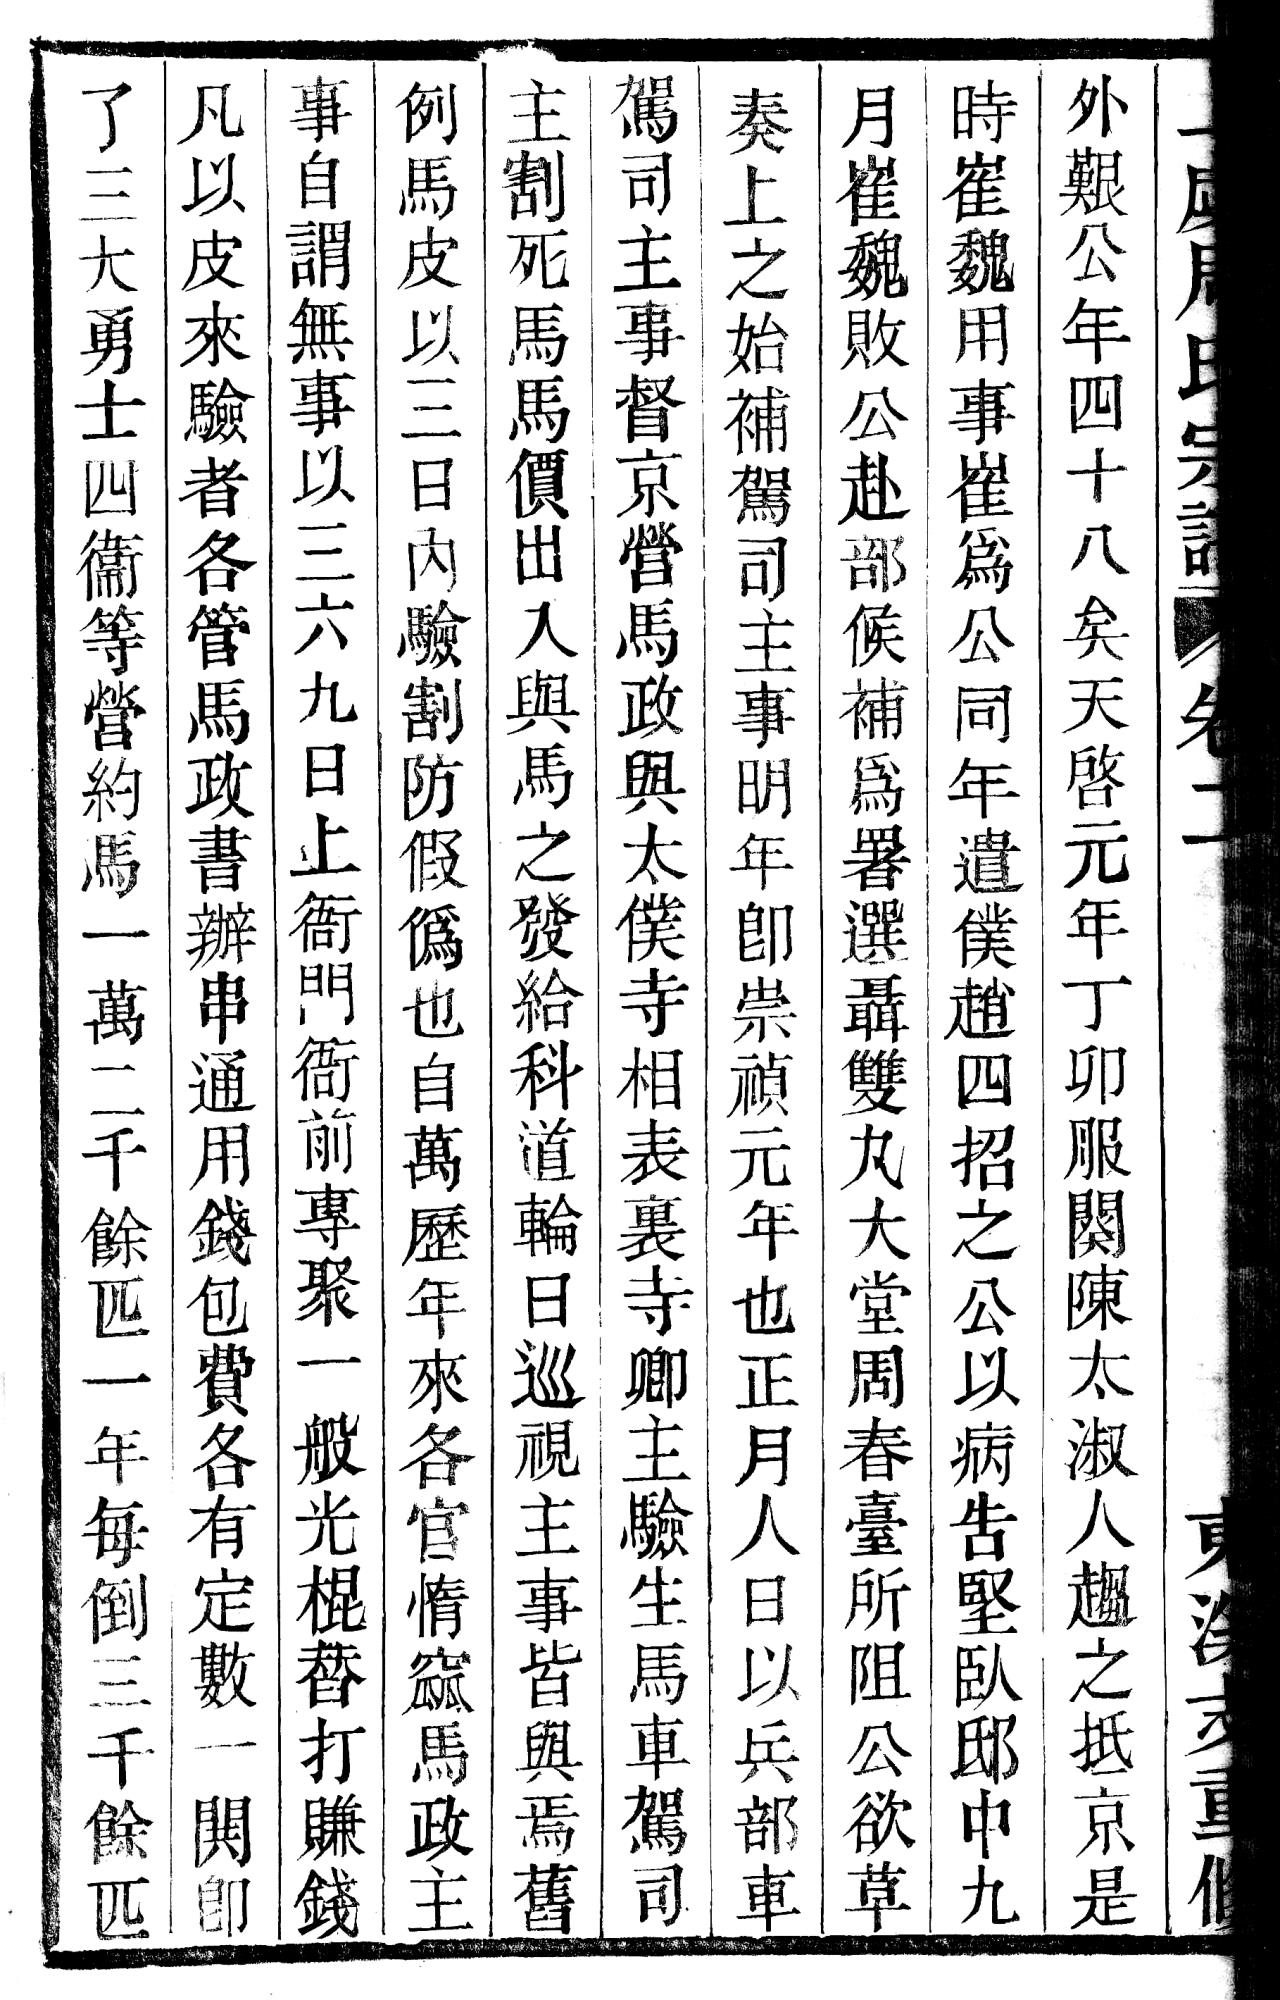 氏宗譜 卷二
外艱公年四十八矣天啓元年丁卯服闋陳太淑人趨之抵京是
時崔魏用事崔爲公同年遣僕趙四招之公以病告堅臥邸中九
月崔魏敗公赴部候補爲署選聶雙丸大堂周春臺所阻公欲草
奏上之始補駕司主事明年卽崇禎元年也正月人日以兵部車
駕司主事督京營馬政與太僕寺相表裏寺卿主驗生馬車駕司
主割死馬馬價出入與馬之發給科道輪日巡視主事皆與焉舊
例馬皮以三日內驗割防假僞也自萬歷年來各官惰窳馬政主
事自謂無事以三六九日上衙門衙前專聚一般光棍替打賺錢
凡以皮來驗者各管馬政書辦串通用錢包費各有定數一閧卽
了三大勇士四衞等營約馬一萬二千餘匹一年每倒三千餘匹